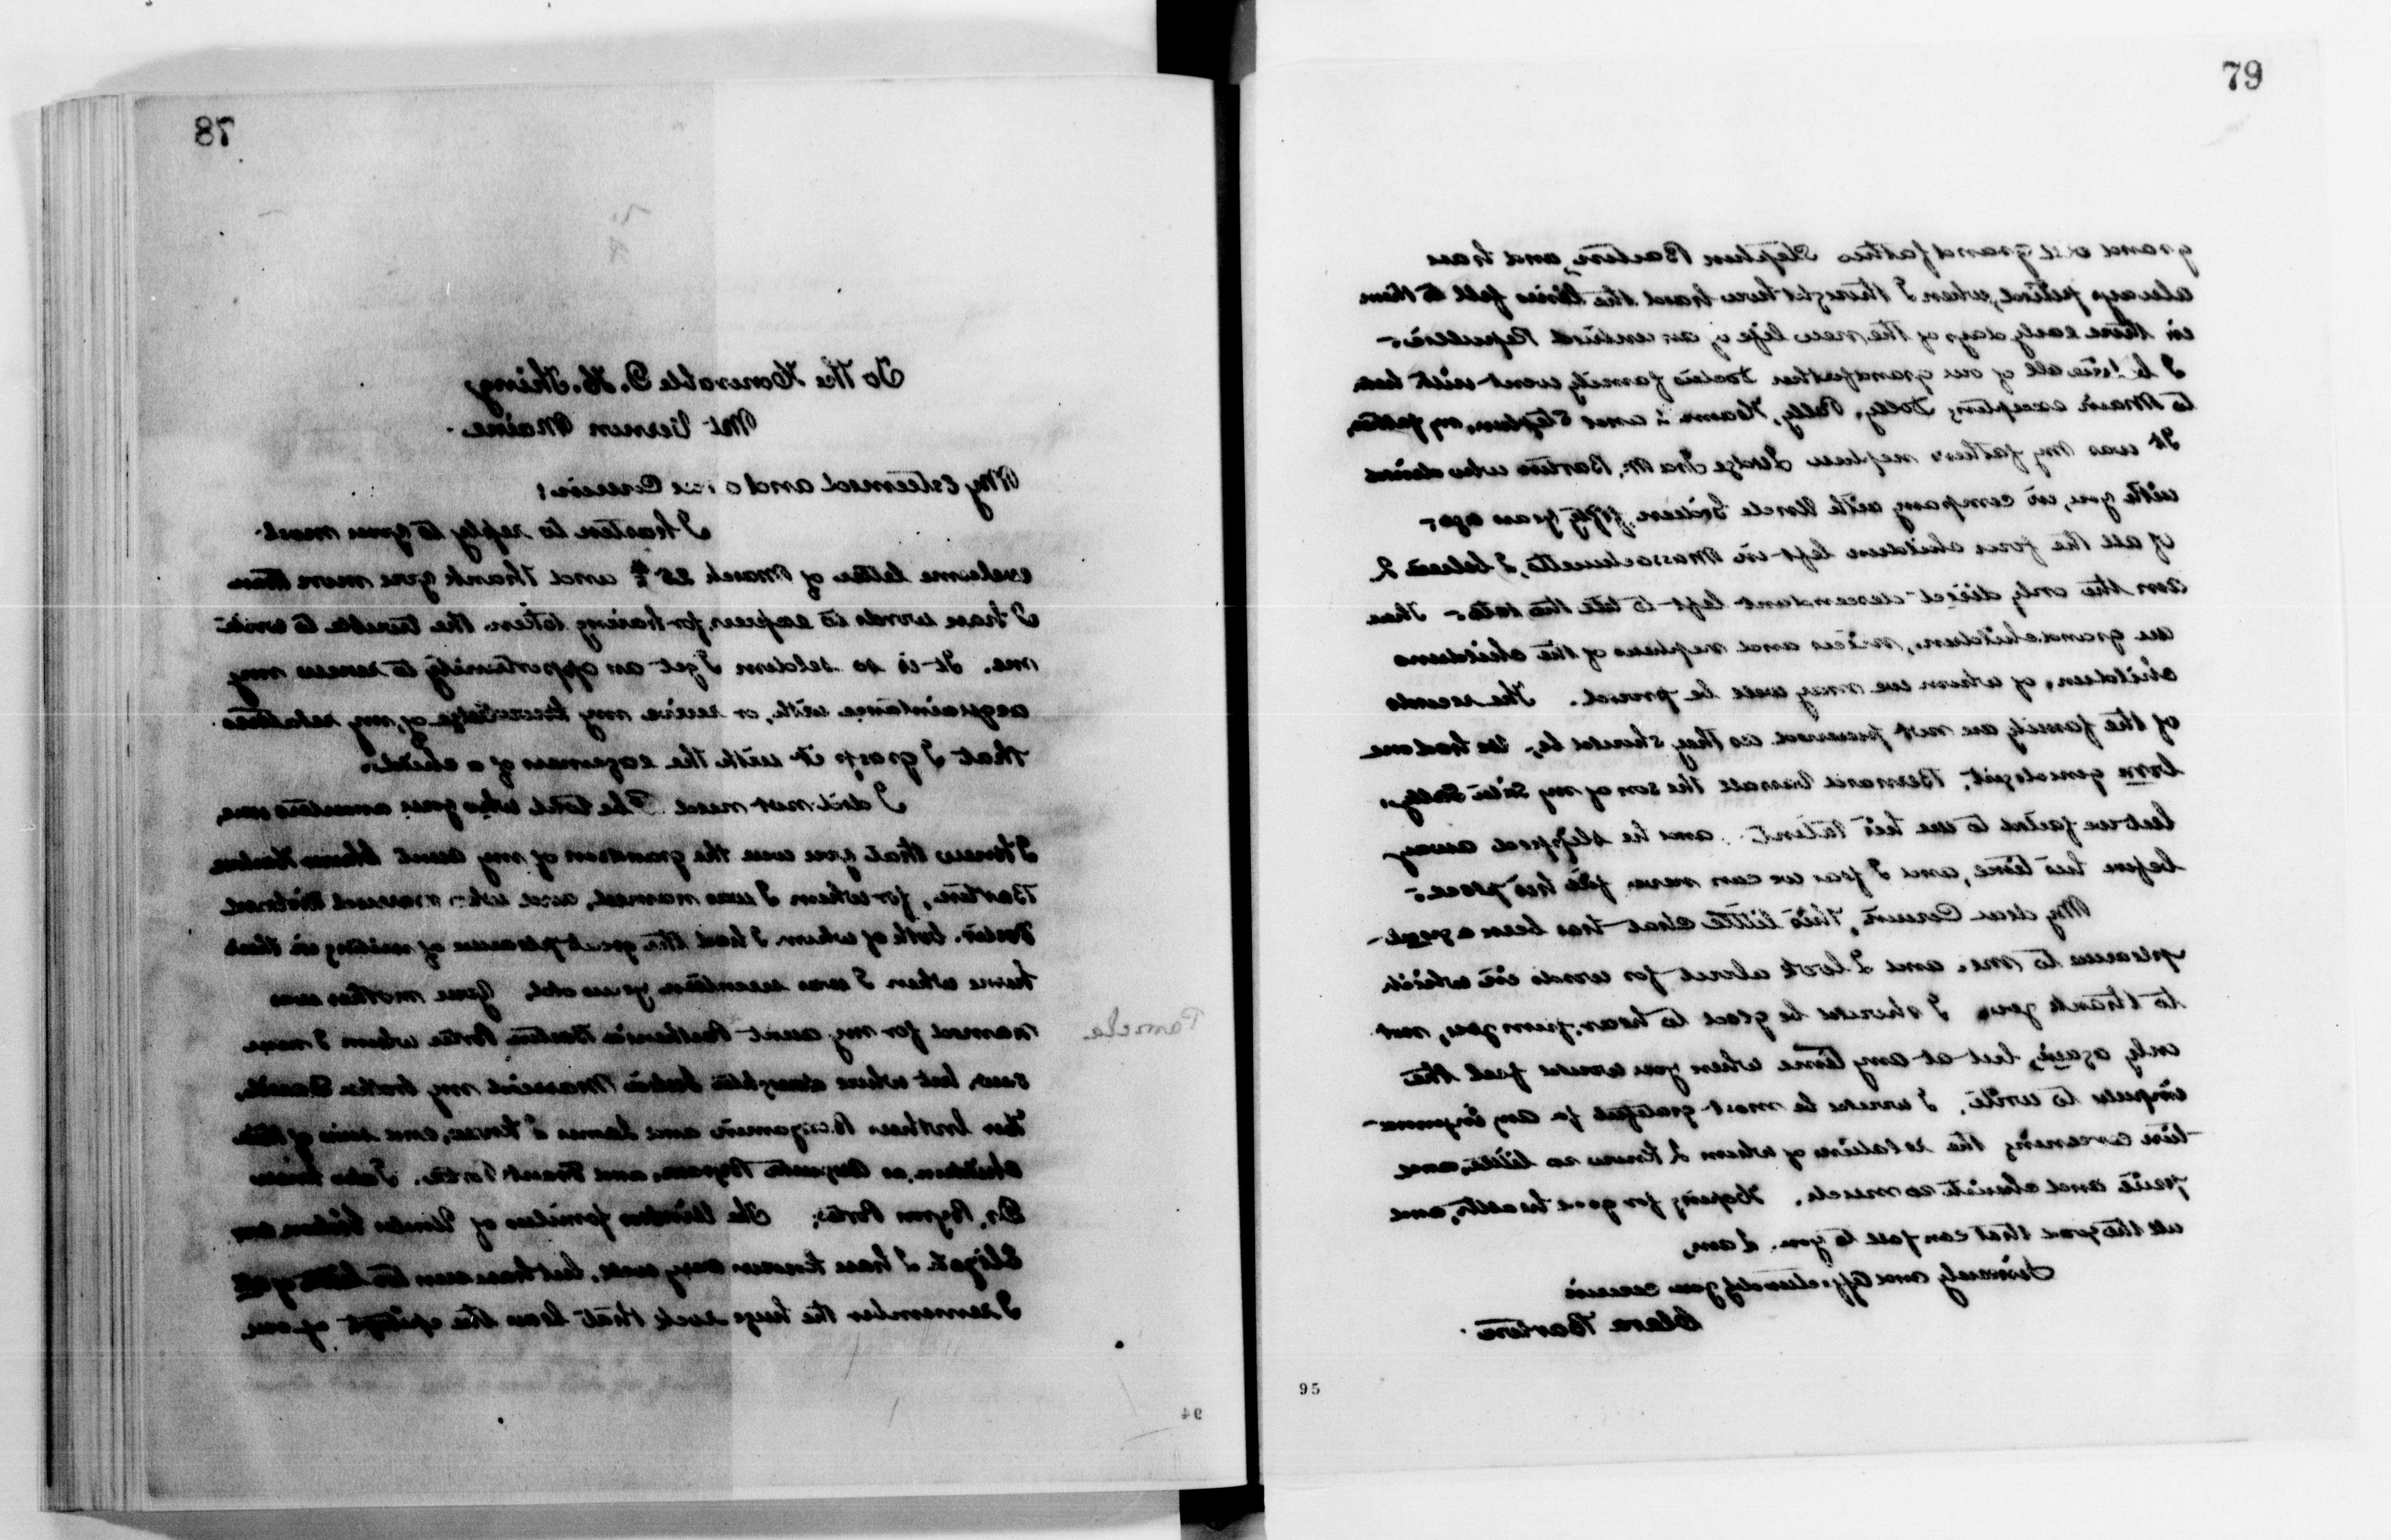 78
To the Honorable D. H. Thing,
Mt Vernon Maine.
My Esteemed and dear Cousin:
I hasten to reply to your most
welcome letter of March 25th and thank you more than
I have words to express, for having taken the trouble to write
me. It is so seldom I get an opportunity to renew my
acquaintance with, or receive any knowledge of, my relatives
that I grasp it with the eagerness of a child.
I did not need to be told who your ancestors were,
I knew that you were the grandson of my aunt
Barton, for whom I was named, and who married
both of whom I had the great pleasure of visiting in their
home when I was seventeen years old. Your mother was
named for my aunt Parthenia Barton Porter whom I never
Pamela
saw, but whose daughter Julia married my brother David,
Her brothers Benjamin and James I knew, and some of their
children, as Augusta Byron, and Frank Porter. I also knew
Dr. Byron Porter; The families of Uncles Gideon and
Elijah I have known very well, but have seen too little of all
I remember the huge rock that bore the epitaph of our
94
79
grand old grandfather Stephen Barton, and have
always pitied, when I thought how hard the times fell to them
in those early days of the new life of an untried Republic.
I believe all of our grandfather Doctor's family went with him
to Maine excepting Dolly, Polly, Hannah and Stephen, my father,
It was my father's nephew Judge Ira M. Barton who
with you, in company with Uncle Gideon, fifty years ago.
of all the four children left in Massachusetts, I believe I
am the only direct descendant left to tell the tale. There
are grandchildren, nieces and nephews of the childrens
children, of whom we may well be proud. The records
of the family are not preserved as they should be, We had one
born genealogist, Bernard Vassall the son of my sister Sally,
but we failed to use his talent and he slipped away
before his time, and I fear we can never fill his place.
My dear Cousin, this little chat has been a great
pleasure to me, and I look about for words in which
to thank you I should be glad to hear from you, not
only again, but at any time when you would feel the
impulse to write, I would be most grateful for any informa-
tion concerning the relatives of whom I know so little, and
prize and cherish so much. Hoping for good health, and
all the good that can fall to you. I am,
Sincerely and affectionately your cousin
Clara Barton.
95